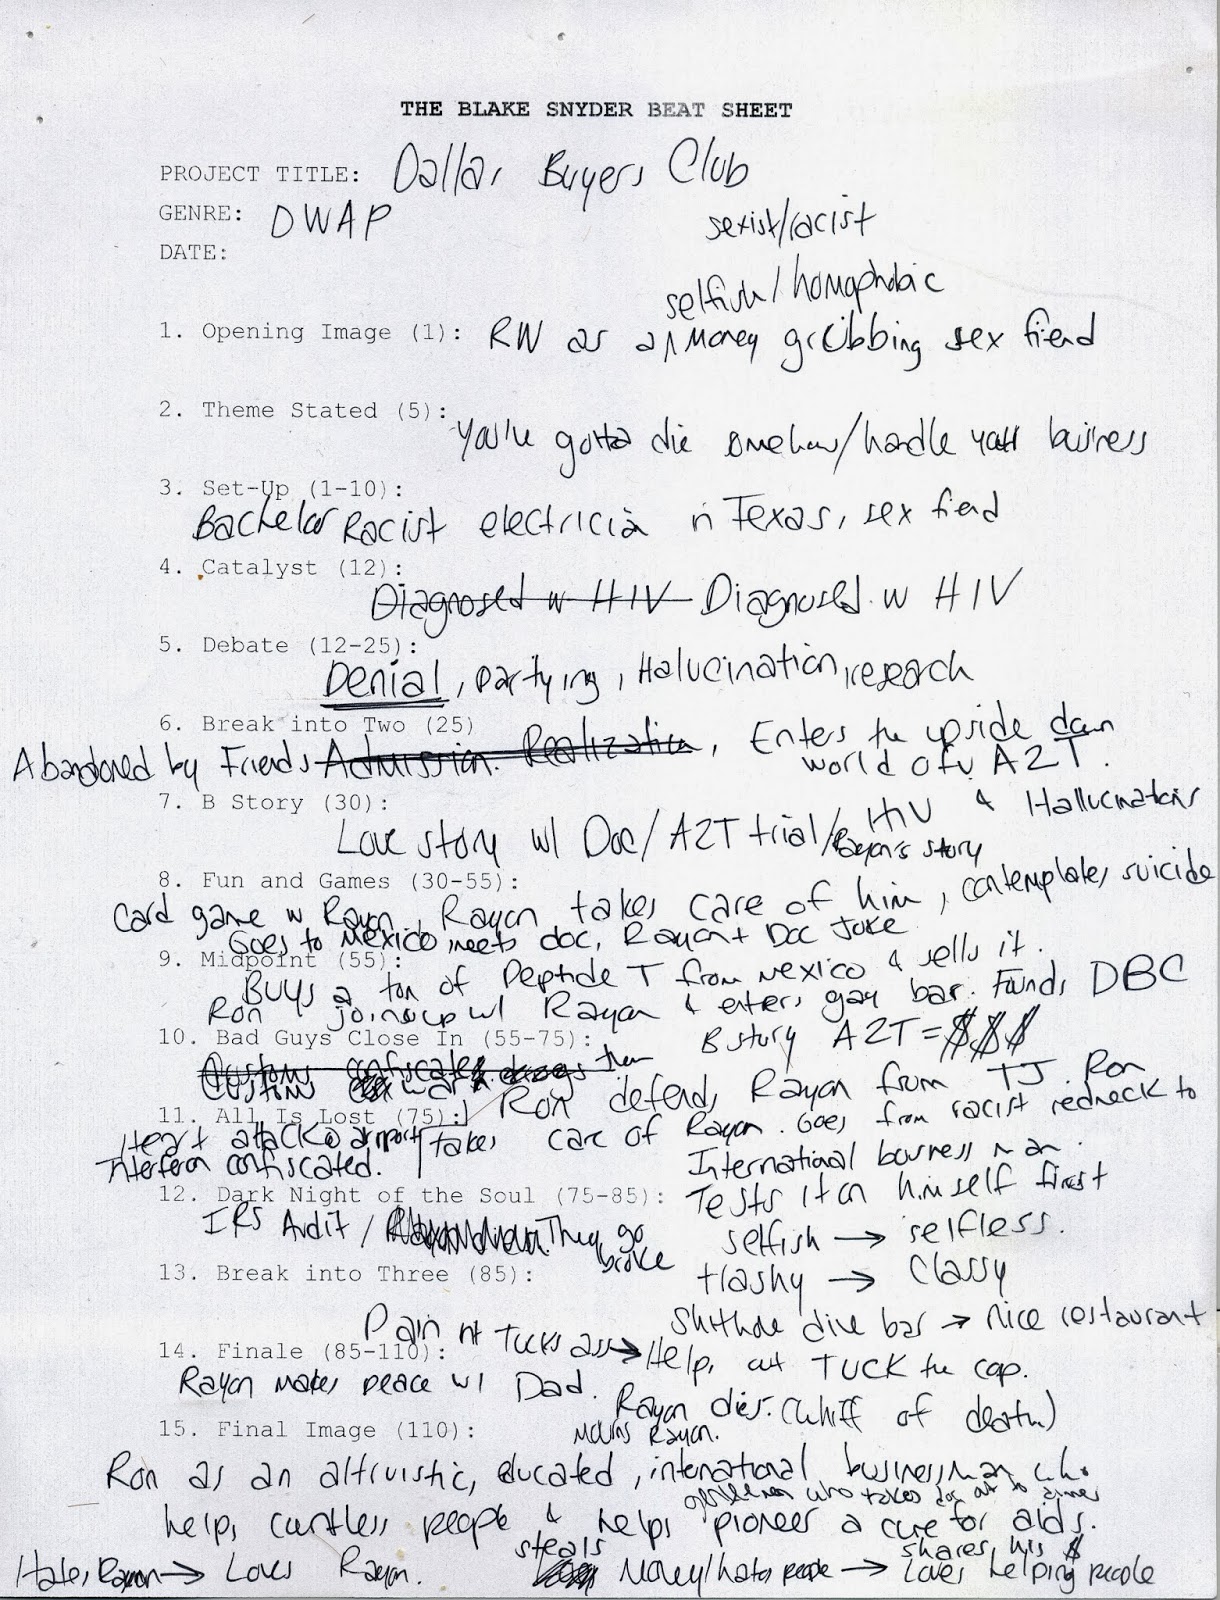 THE BLAKE SNYDER BEAT SHEET
PROJECT TITLE: Dallas Buyers Club
GENRE: DWAP
sexist/racist
DATE:
selfish/homophobic
1. Opening Image (1): RW as a ^ money grubbing sex fiend
2. Theme Stated (5):
You're gotta die somehow/handle your business
3. Set-Up (1-10):
Bachelor Racist electrician in Texas, sex fiend
4. Catalyst (12):
Diagnosed w HIV Diagnosed w HIV
5. Debate (12-25):
Denial, partying, Halucination, research
6. Break into Two (25)
Abandoned by Friends Admission. Realization, Enters the upside down
world of AZT.
7. B Story (30):
HIV & Hallucinations
Love story w/ Doc/AZT trial/Rayon's story
8. Fun and Games (30-55):
Card game w Rayon, Rayon takes care of him, contemplates suicide
Goes to Mexico, meets doc, Rayon + Doc Joke
9. Midpoint (55):
Buys a ton of Peptide T from Mexico & sells it.
Ron joins up w/ Rayon & enters gay bar. Founds DBC
10. Bad Guys Close In (55-75):
B story AZT = $$$
Customs confiscates drugs them
Customs
Ron defends Rayon from TJ. Ron
11. All Is Lost (75):
takes care of Rayon. Goes from racist redneck to
International business man.
Heart attack @ airport
Interferon confiscated.
12. Dark Night of the Soul (75-85):
Tests it on himself first
IRS Audit / They go broke
selfish → selfless.
13. Break into Three (85):
trashy → Classy
shithole dive bar → nice restaurant
14. Finale (85-110):
Tucks ass → Helps out Tuck the cop.
Rayon makes peace w/ Dad.
Rayon dies. (whiff of death)
15. Final Image (110):
Mourns Rayon.
Ron as an altruistic, educated, international businessman who
gentleman who takes doc out to dinner
helps countless people & helps pioneer a cure for aids.
Hates Rayon → Loves Rayon.
steals Money/hates people → Loves helping people
shares his $